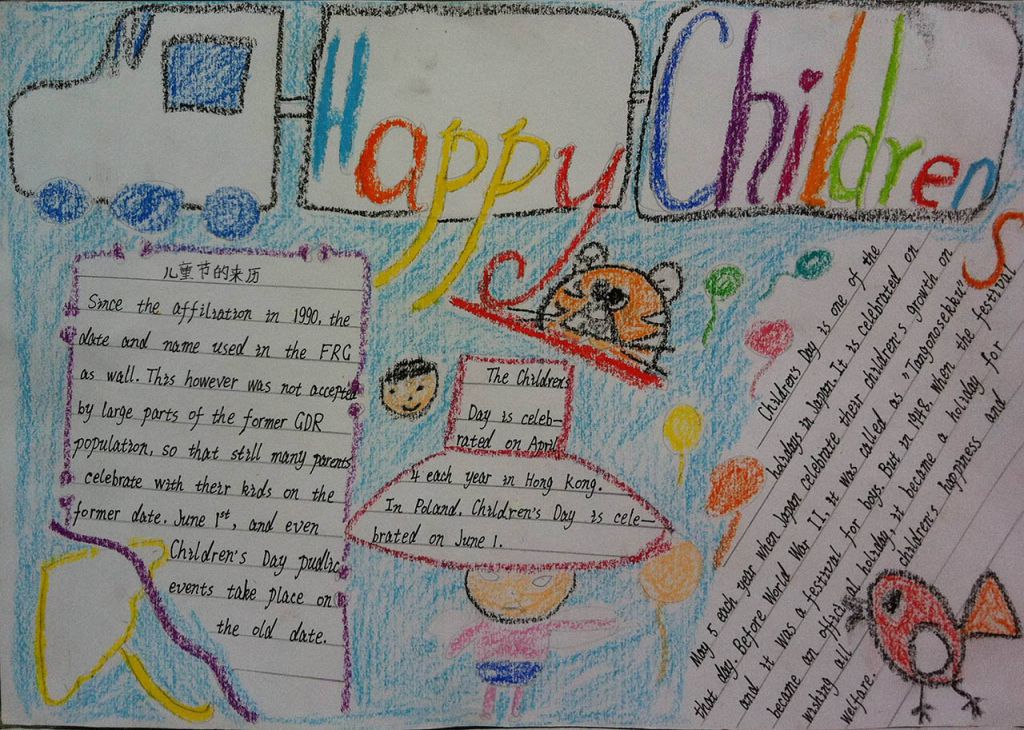 Happy Childrens
儿童节的来历
Since the affiliation in 1990, the
date and name used in the FRG
as wall. This however was not accepted
by large parts of the former GDR
population, so that still many parents
celebrate with their kids on the
former date. June 1st, and even
Children's Day pudlic
events take place on
the old date.
The Childrens
Day is celeb-
rated on April
4 each year in Hong Kong.
In Poland. Children's Day is cele-
brated on June 1.
Children's Day is one of the
holidays in Japan. It is celebrated on
May 5 each year when Japan celebrate their children's growth on
that day. Before World War II it was called as "Tangonosekku"
and it was a festival for boys. But in 1948. when the festival
became an official holiday, it became a holiday for
wishing all children's happiness and
welfare.